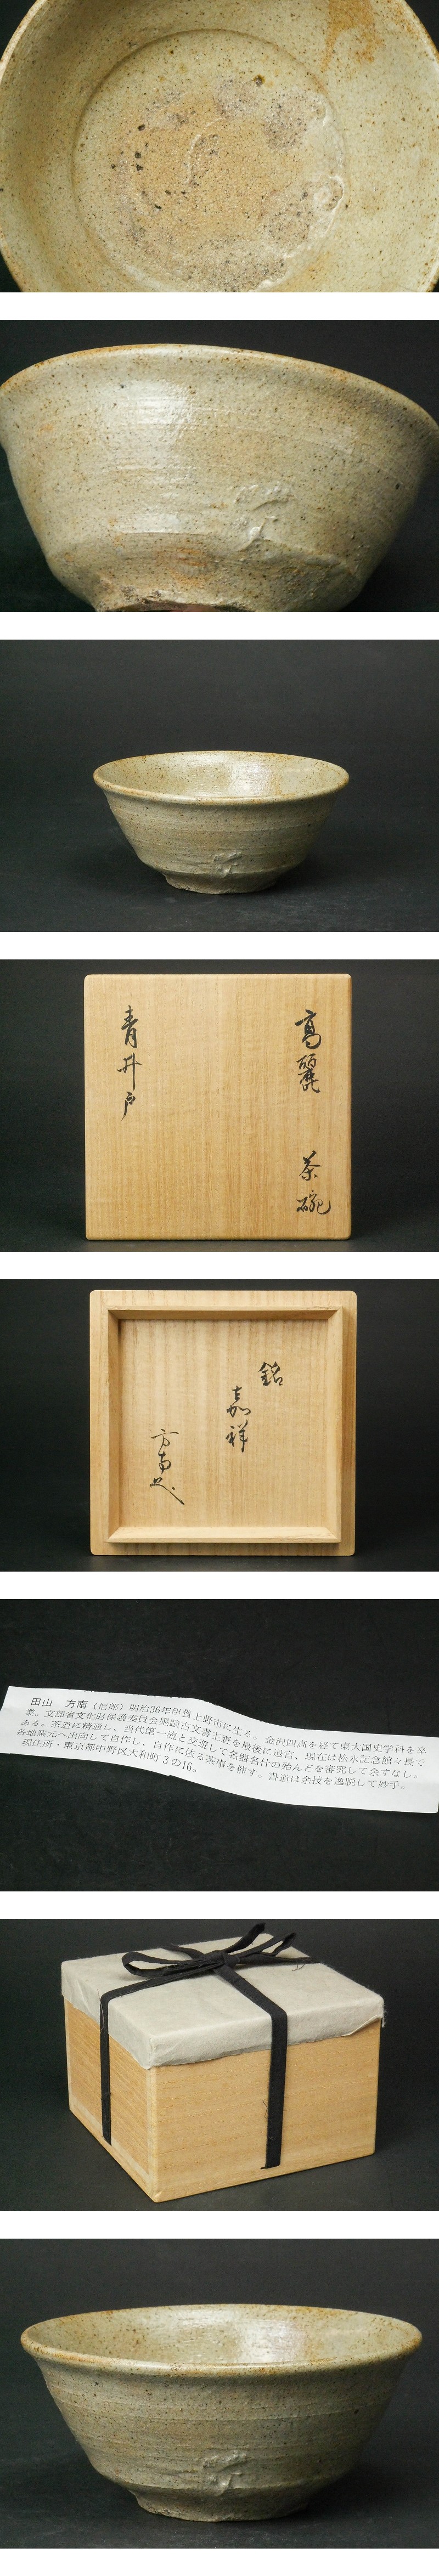 高麗 茶碗
青井戸
銘
嘉祥
方南
田山 方南（信郎）明治36年伊賀上野市に生る。金沢四高を経て東大国史学科を卒
業。文部省文化財保護委員会墨蹟古文書主査を最後に退官、現在は松永記念館々長で
ある。茶道に精通し、当代第一流と交遊して名器名什の殆んどを審究して余すなし。
各地窯元へ出向して自作し、自作に依る茶事を催す。書道は余技を逸脱して妙手。
現住所・東京都中野区大和町3の16。